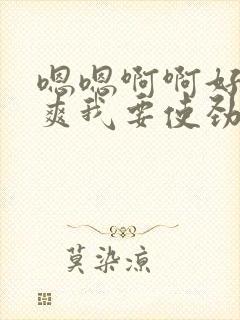 嗯嗯啊啊好
爽我要使劲
莫染凉